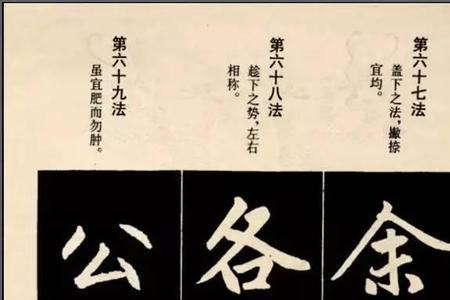 第六十七法
盖下之法，撇捺
宜均。
余
第六十八法
趁下之势，左右
相称。
各
第六十九法
虽宜肥而勿肿。
公